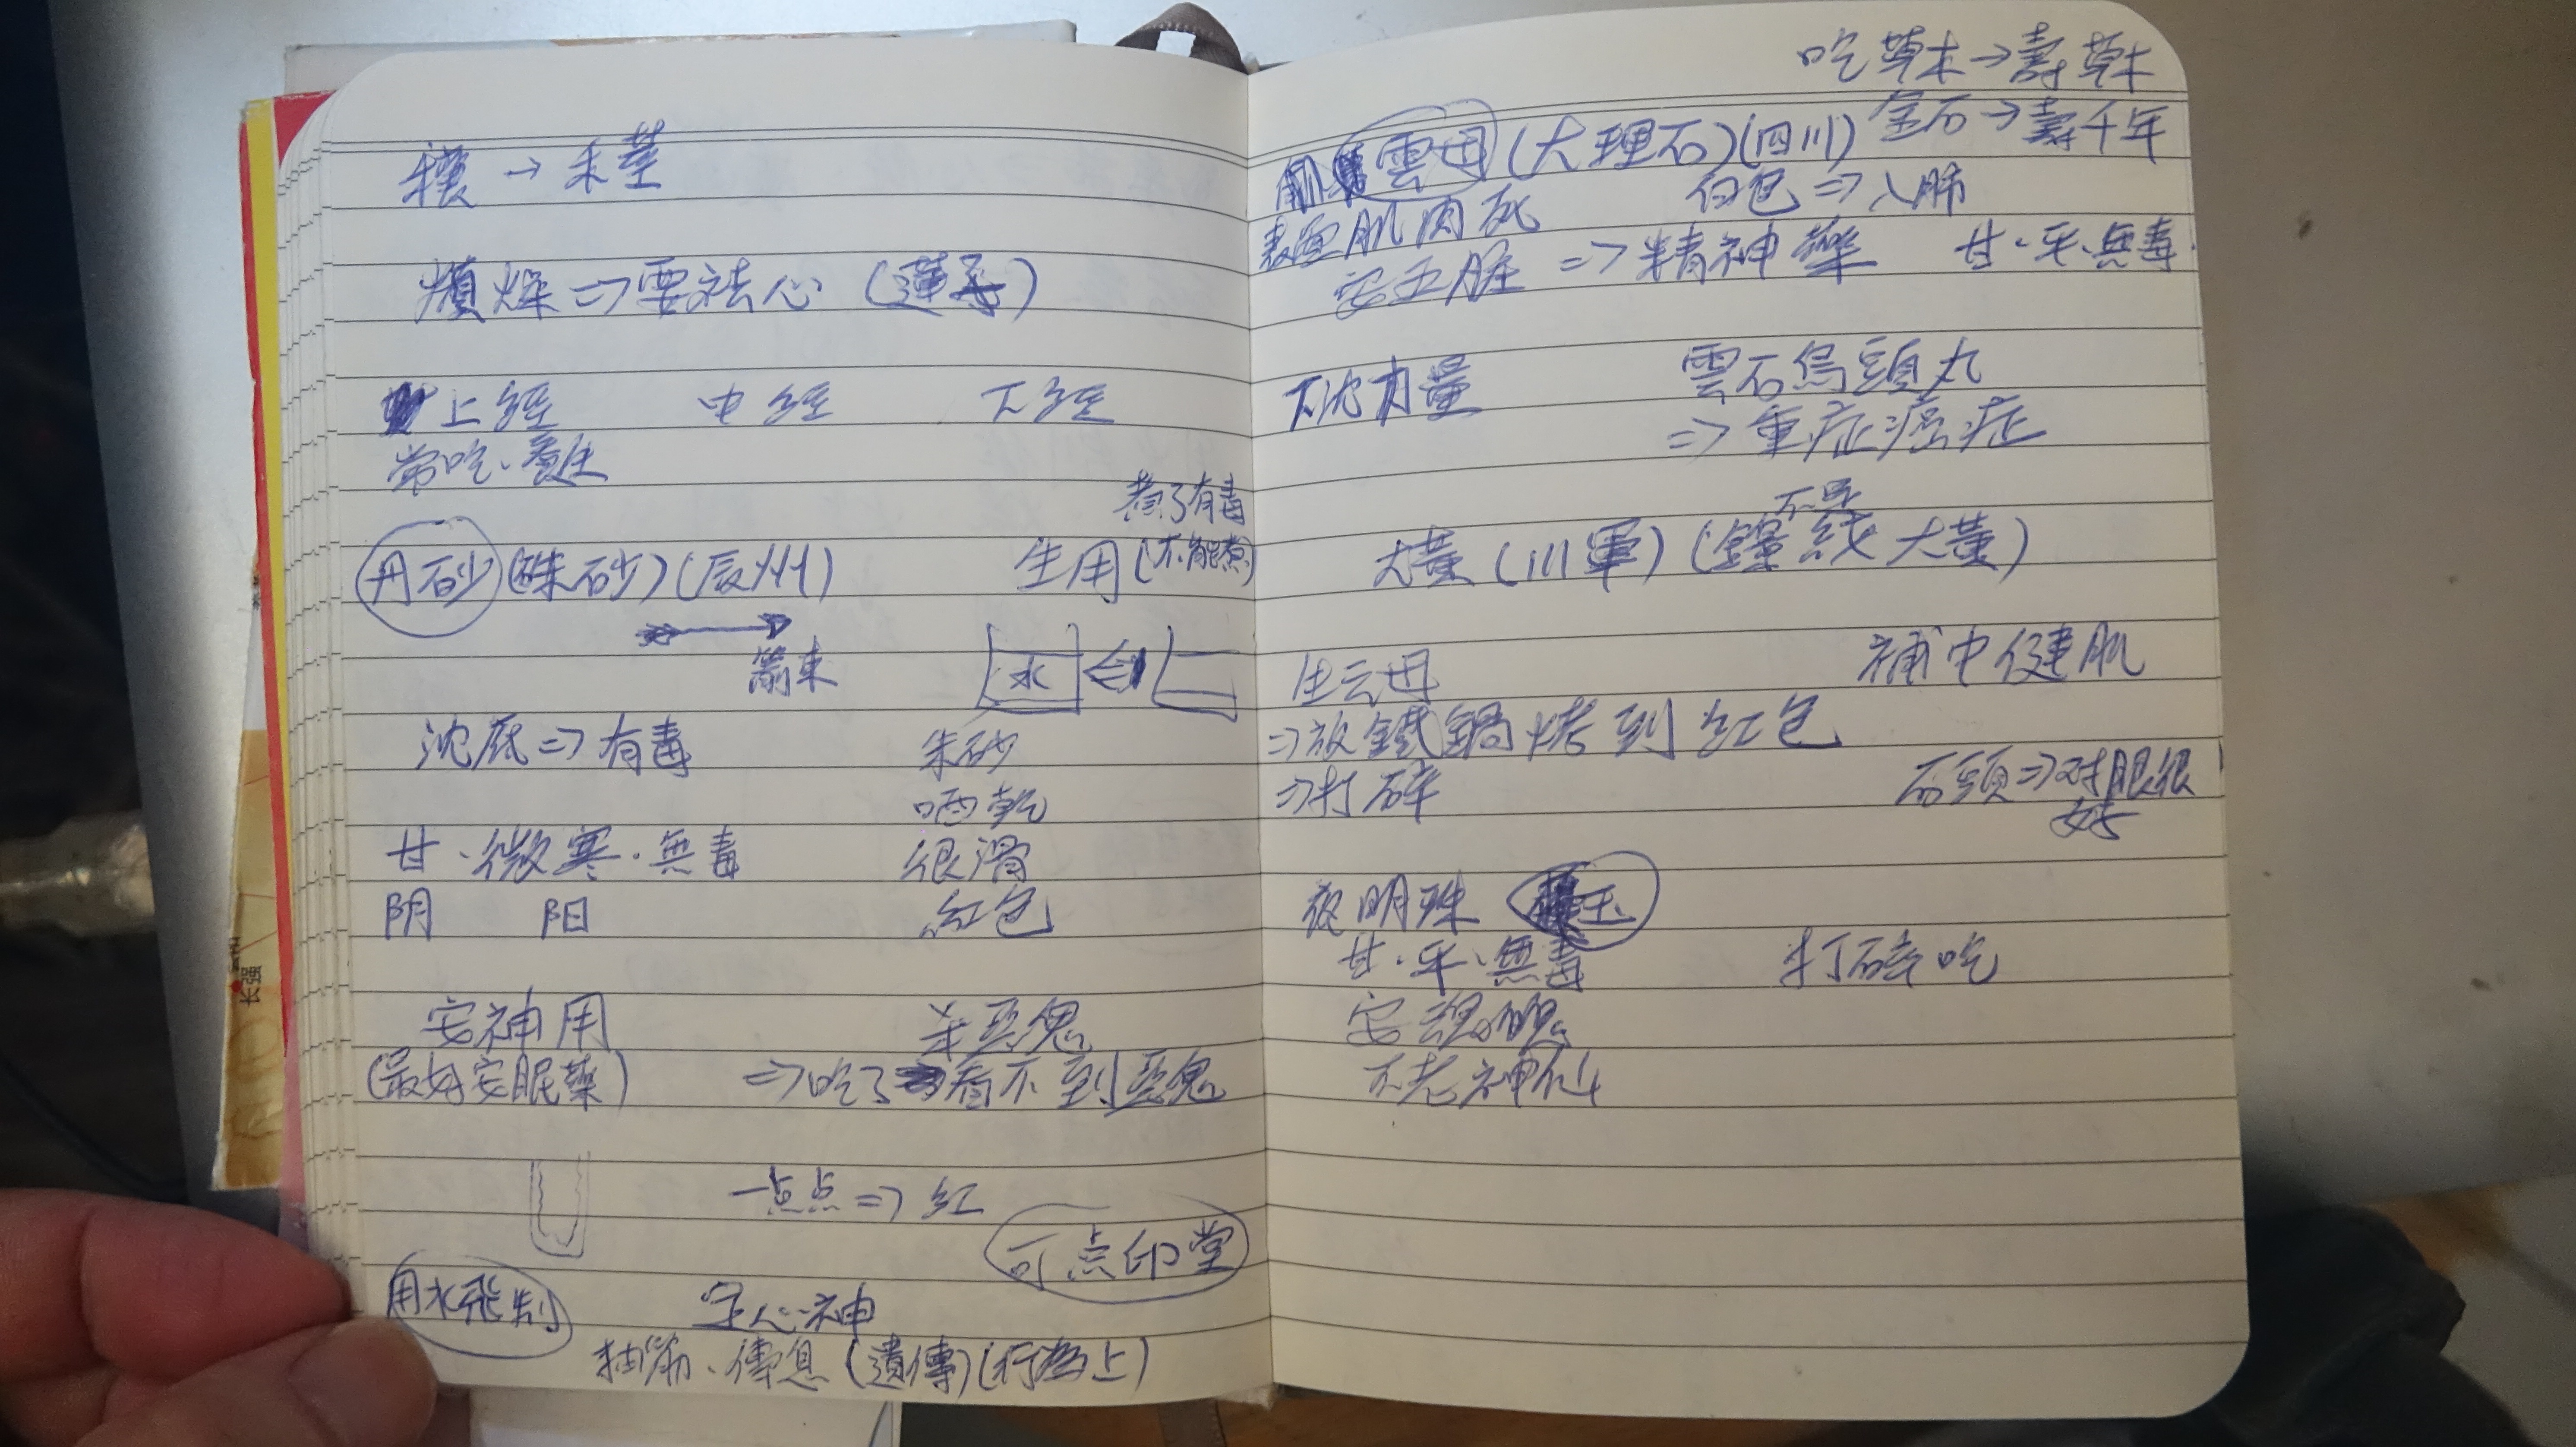 穰→禾莖
煩燥⇒要祛心（蓮子）
上經 中經 下經
常吃、養生
煮了有毒
丹砂（硃砂）（辰州） 生用（不能煮）
箭末 水
沈底⇒有毒 朱砂
晒乾
甘·微寒·無毒 很滑
阴 阳 紅色
安神用 杀惡鬼
（最好安眠藥）⇒吃了看不到惡鬼
一点点⇒紅
可点印堂
用水飛制 定心神
抽筋、（遺傳）（行為上）
吃草木→壽草木
金石→壽千年
雲母（大理石）（四川）
白色⇒入肺
表虛肌肉死
安五脏⇒精神藥 甘·平·無毒
下沈力量 雲石烏頭丸
⇒重症癌症
不是
大黃（川軍）（錦紋大黃）
補中健肌
生云母
⇒放鐵鍋烤到紅色
⇒打碎
石頭⇒对眼很好
夜明珠 玉
甘·平·無毒 打碎吃
安魂魄
不老神仙
长强